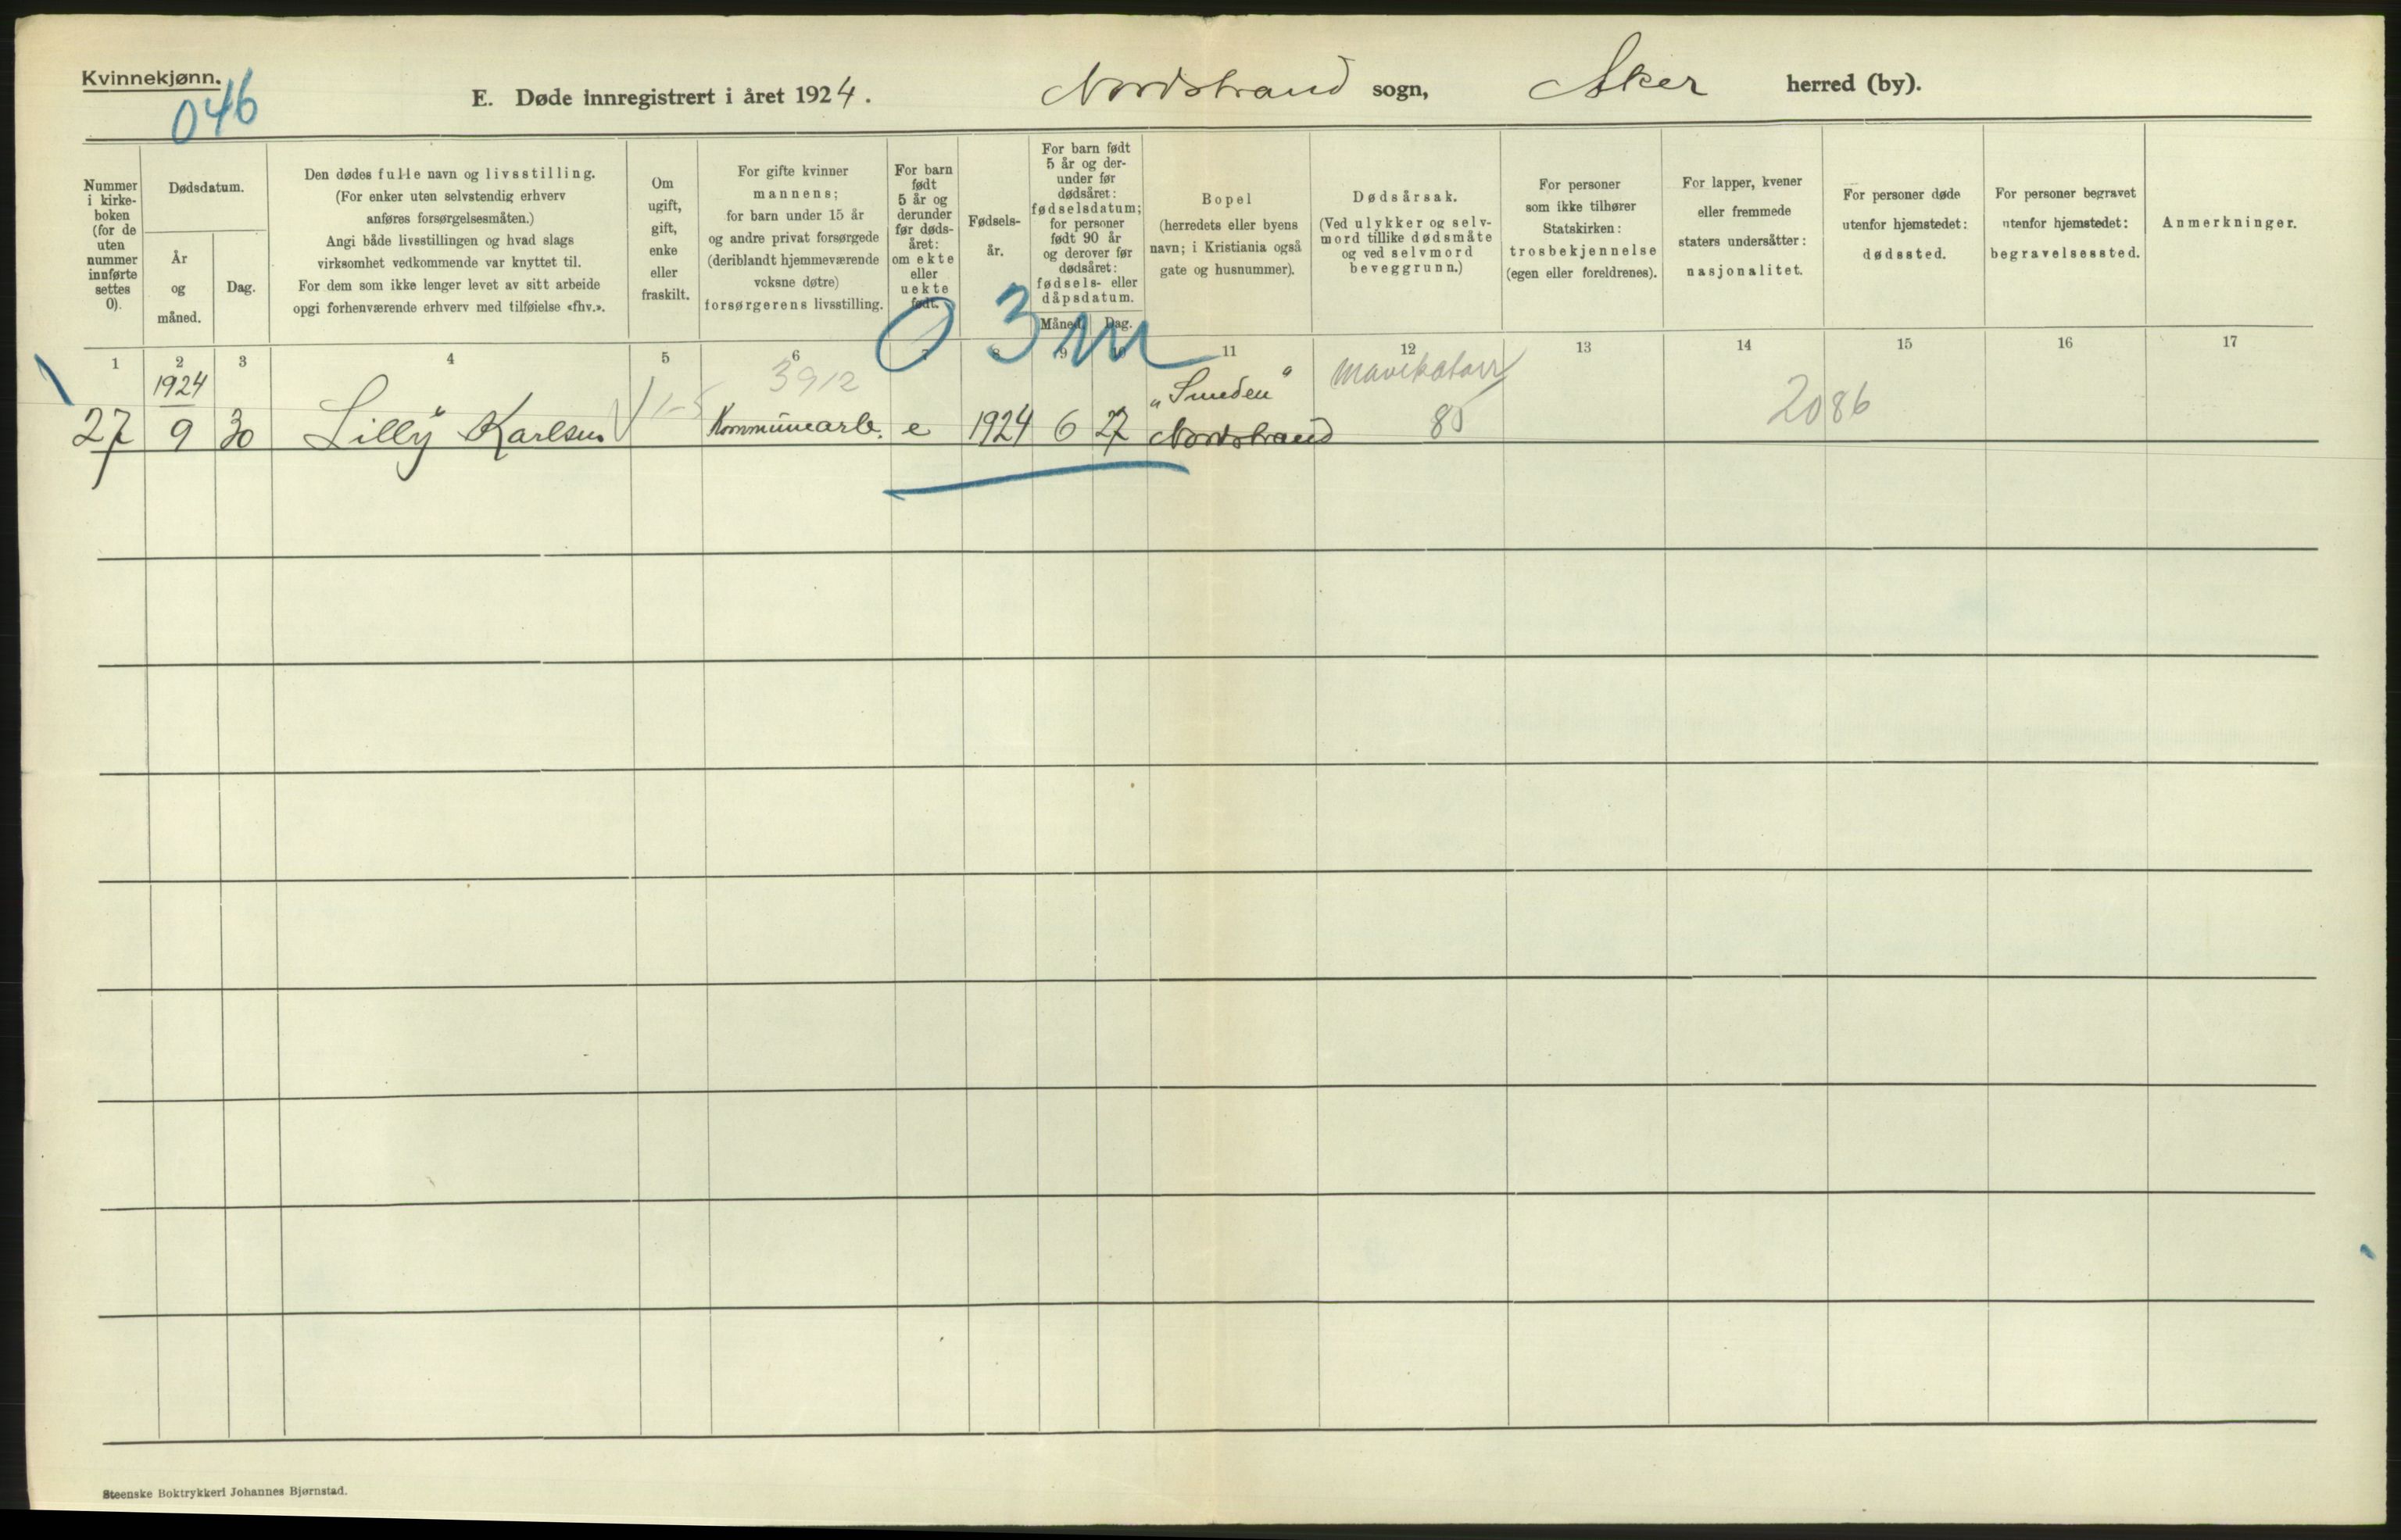 Kvinnekjønn.
046
E. Døde innregistrert i året 1924.
Nordstrand sogn, Aker herred (by).
Nummer
i kirke-
boken
(for de
uten
nummer
innførte
settes
0).
Dødsdatum.
År
og
måned.
Dag.
Den dødes fulle navn og livsstilling.
(For enker uten selvstendig erhverv
anføres forsørgelsesmåten.)
Angi både livsstillingen og hvad slags
virksomhet vedkommende var knyttet til.
For dem som ikke lenger levet av sitt arbeide
opgi forhenværende erhverv med tilføielse «fhv.».
Om
ugift,
gift,
enke
eller
fraskilt.
For gifte kvinner
mannens;
for barn under 15 år
og andre privat forsørgede
(deriblandt hjemmeværende
voksne døtre)
forsørgerens livsstilling.
For barn
født
5 år og
derunder
før døds-
året:
om ekte
eller
uekte
født.
Fødsels-
år.
For barn født
5 år og der-
under før
dødsåret:
fødselsdatum;
for personer
født 90 år
og derover før
dødsåret:
fødsels- eller
dåpsdatum.
Måned. Dag.
Bopel
(herredets eller byens
navn; i Kristiania også
gate og husnummer).
Dødsårsak.
(Ved ulykker og selv-
mord tillike dødsmåte
og ved selvmord
beveggrunn.)
For personer
som ikke tilhører
Statskirken:
trosbekjennelse
(egen eller foreldrenes).
For lapper, kvener
eller fremmede
staters undersåtter:
nasjonalitet.
For personer døde
utenfor hjemstedet:
dødssted.
For personer begravet
utenfor hjemstedet:
begravelsessted.
Anmerkninger.
0 3 m
1 2 3 4 5 6 7 8 9 10 11 12 13 14 15 16 17
1924 3912 „Smeden“ Mavekatarr
27 9 30 Lilly Karlsen 1-5 Kommunearb. e 1924 6 27 Nordstrand 85 2086
Steenske Boktrykkeri Johannes Bjørnstad.